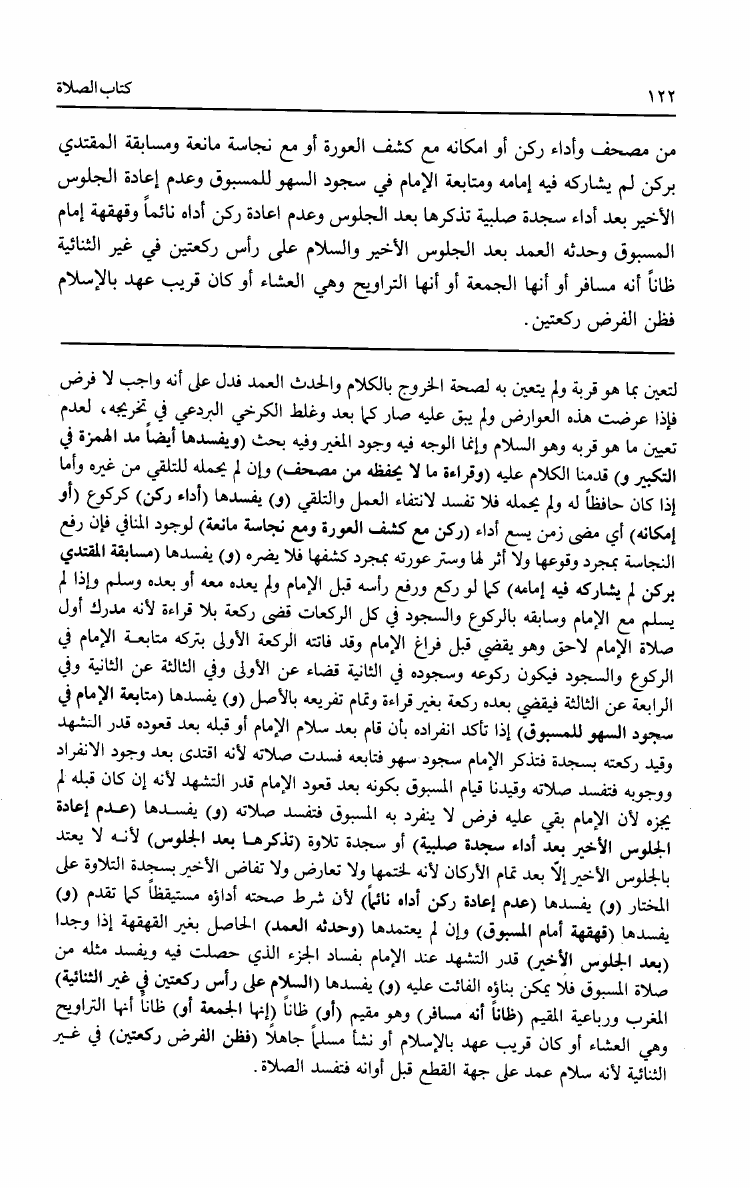 ١٢٢ كتاب الصلاة
من مصحف وأداء ركن أو امكانه مع كشف العورة أو مع نجاسة مانعة ومسابقة المقتدي
بركن لم يشاركه فيه إمامه ومتابعة الإمام في سجود السهو للمسبوق وعدم إعادة الجلوس
الأخير بعد أداء سجدة صلبية تذكرها بعد الجلوس وعدم اعادة ركن أداه نائماً وقهقهة إمام
المسبوق وحدثه العمد بعد الجلوس الأخير والسلام على رأس ركعتين في غير الثنائية
ظاناً أنه مسافر أو أنها الجمعة أو أنها التراويح وهي العشاء أو كان قريب عهد بالإسلام
فظن الفرض ركعتين.
لتعين بما هو قربة ولم يتعين به لصحة الخروج بالكلام والحدث العمد فدل على أنه واجب لا فرض
فإذا عرضت هذه العوارض ولم يبق عليه صار كما بعد وغلط الكرخي البردعي في تخريجه، لعدم
تعيين ما هو قربه وهو السلام وإنما الوجه فيه وجود المغير وفيه بحث (ويفسدها أيضاً مد الهمزة في
التكبير و) قدمنا الكلام عليه (وقراءة ما لا يحفظه من مصحف) وإن لم يحمله للتلقي من غيره وأما
إذا كان حافظاً له ولم يحمله فلا تفسد لانتفاء العمل والتلقي (و) يفسدها (أداء ركن) كركوع (أو
إمكانه) أي مضى زمن يسع أداء (ركن مع كشف العورة ومع نجاسة مانعة) لوجود المنافي فإن رفع
النجاسة بمجرد وقوعها ولا أثر لها وستر عورته بمجرد كشفها فلا يضره (و) يفسدها (مسابقة المقتدي
بركن لم يشاركه فيه إمامه) كما لو ركع ورفع رأسه قبل الإمام ولم يعده معه أو بعده وسلم وإذا لم
يسلم مع الإمام وسابقه بالركوع والسجود في كل الركعات قضى ركعة بلا قراءة لأنه مدرك أول
صلاة الإمام لاحق وهو يقضي قبل فراغ الإمام وقد فاتته الركعة الأولى بتركه متابعة الإمام في
الركوع والسجود فيكون ركوعه وسجوده في الثانية قضاء عن الأولى وفي الثالثة عن الثانية وفي
الرابعة عن الثالثة فيقضي بعده ركعة بغير قراءة وتمام تفريعه بالأصل (و) يفسدها (متابعة الإمام في
سجود السهو للمسبوق) إذا تأكد انفراده بأن قام بعد سلام الإمام أو قبله بعد قعوده قدر التشهد
وقيد ركعته بسجدة فتذكر الإمام سجود سهو فتابعه فسدت صلاته لأنه اقتدى بعد وجود الانفراد
ووجوبه فتفسد صلاته وقيدنا قيام المسبوق بكونه بعد قعود الإمام قدر التشهد لأنه إن كان قبله لم
يجزه لأن الإمام بقي عليه فرض لا ينفرد به المسبوق فتفسد صلاته (و) يفسدها (عدم إعادة
الجلوس الأخير بعد أداء سجدة صلبية) أو سجدة تلاوة (تذكرها بعد الجلوس) لأنه لا يعتد
بالجلوس الأخير إلّا بعد تمام الأركان لأنه لختمها ولا تعارض ولا تفاض الأخير بسجدة التلاوة على
المختار (و) يفسدها (عدم إعادة ركن أداه نائماً) لأن شرط صحته أداؤه مستيقظاً كما تقدم (و)
يفسدها (قهقهة أمام المسبوق) وإن لم يعتمدها (وحدثه العمد) الحاصل بغير القهقهة إذا وجدا
(بعد الجلوس الأخير) قدر التشهد عند الإمام بفساد الجزء الذي حصلت فيه ويفسد مثله من
صلاة المسبوق فلا يمكن بناؤه الفائت عليه (و) يفسدها (السلام على رأس ركعتين في غير الثنائية)
المغرب ورباعية المقيم (ظاناً أنه مسافر) وهو مقيم (أو) ظاناً (إنها الجمعة أو) ظاناً أنها التراويح
وهي العشاء أو كان قريب عهد بالإسلام أو نشأ مسلماً جاهلاً (فظن الفرض ركعتين) في غير
الثنائية لأنه سلام عمد على جهة القطع قبل أوانه فتفسد الصلاة.